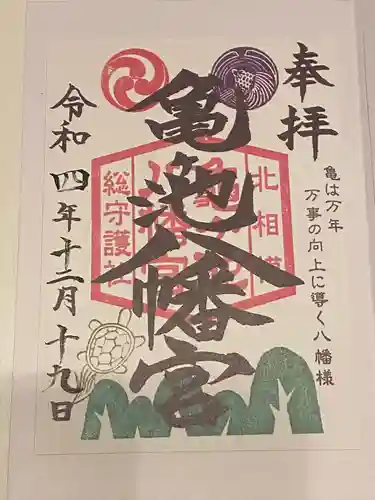 奉拝
亀は万年
万事の向上に導く八幡様
北相模
亀ヶ池
八幡宮
総守護社
亀池八幡宮
令和四年十二月十九日